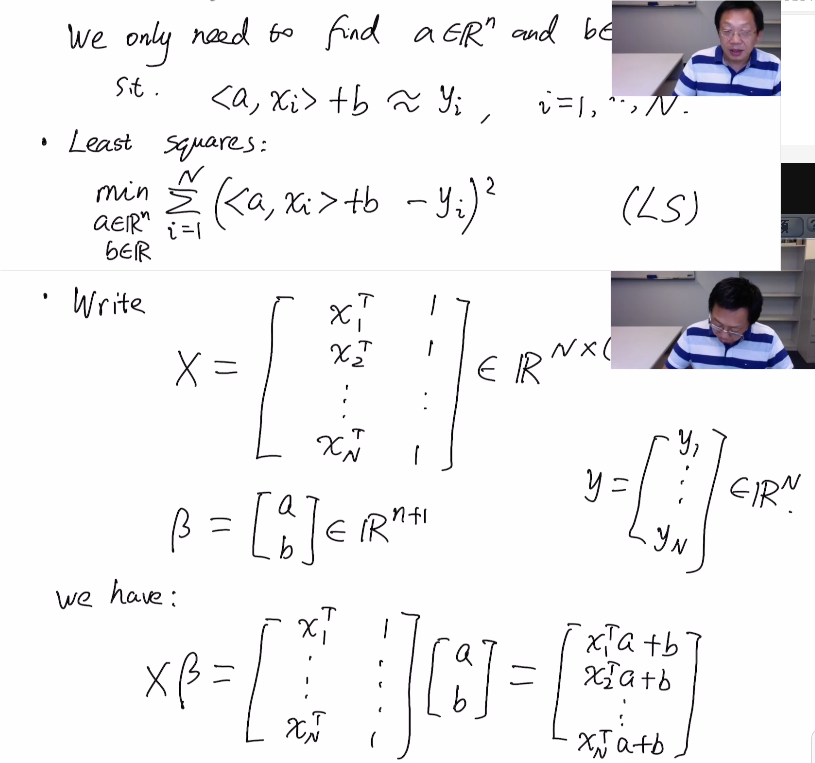 We only need to find a ∈ ℝⁿ and b ∈
s.t. <a, xᵢ> + b ≈ yᵢ, i=1, ⋯, N.
• Least squares:
min_{a∈ℝⁿ, b∈ℝ} ∑_{i=1}^{N} (<a, xᵢ> + b - yᵢ)² (LS)
• Write
X = [x₁ᵀ 1; x₂ᵀ 1; ⋮ ⋮; x_Nᵀ 1] ∈ ℝ^{N×(
y = [y₁; ⋮; y_N] ∈ ℝᴺ.
β = [a; b] ∈ ℝⁿ⁺¹
we have:
Xβ = [x₁ᵀ 1; ⋮ ⋮; x_Nᵀ 1] [a; b] = [x₁ᵀa + b; x₂ᵀa + b; ⋮; x_Nᵀa + b]